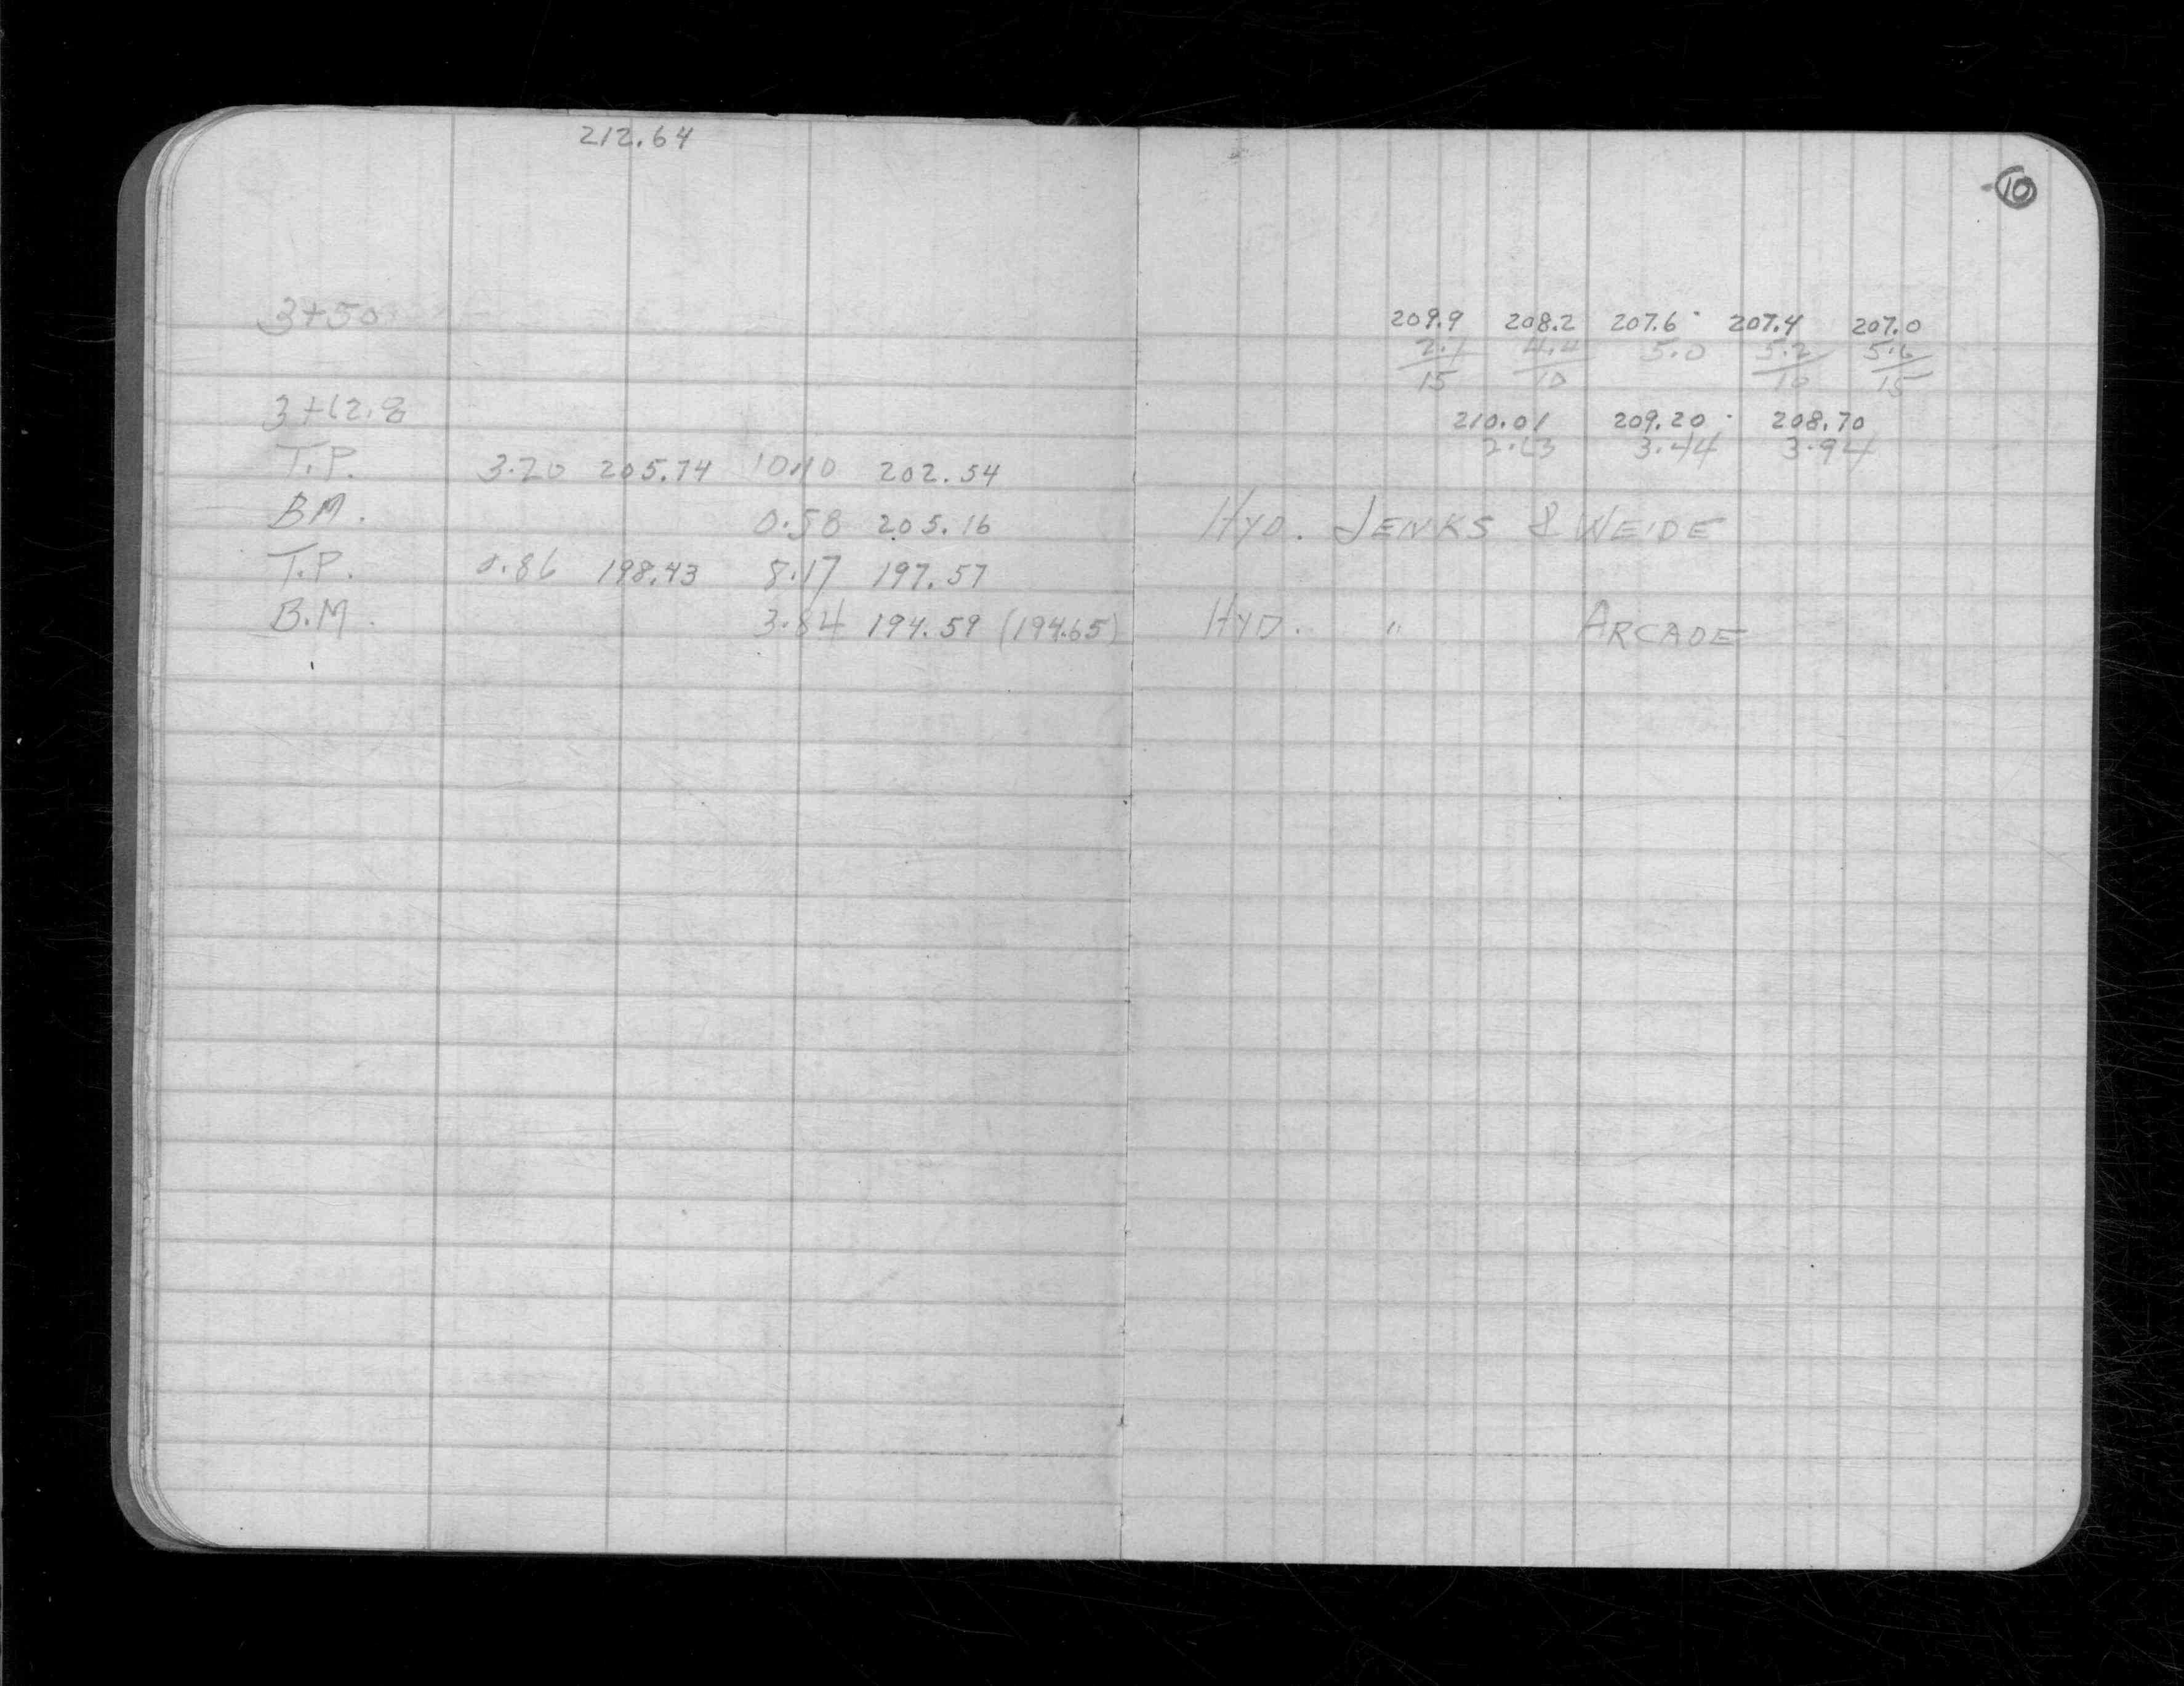 212.64
10
3+50 209.9 208.2 207.6 207.4 207.0
2.7 4.4 5.0 5.2 5.6
15 10 10 15
3+12.8 210.01 209.20 208.70
2.63 3.44 3.94
T.P. 3.20 205.74 10.10 202.54
BM. 0.58 205.16 HYD. JENKS & WEIDE
T.P. 0.86 198.43 8.17 197.57
B.M. 3.84 194.59 (194.65) HYD. " ARCADE